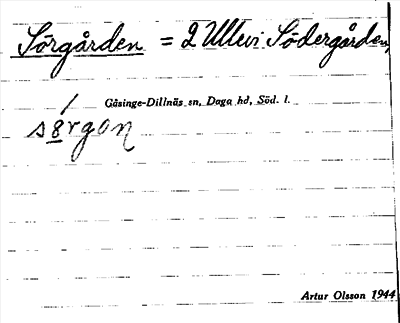 Sörgården = 2 Ullevi Södergården,
Gåsinge-Dillnäs sn, Daga hd, Söd. l.
s8rgan
Artur Olsson 1944